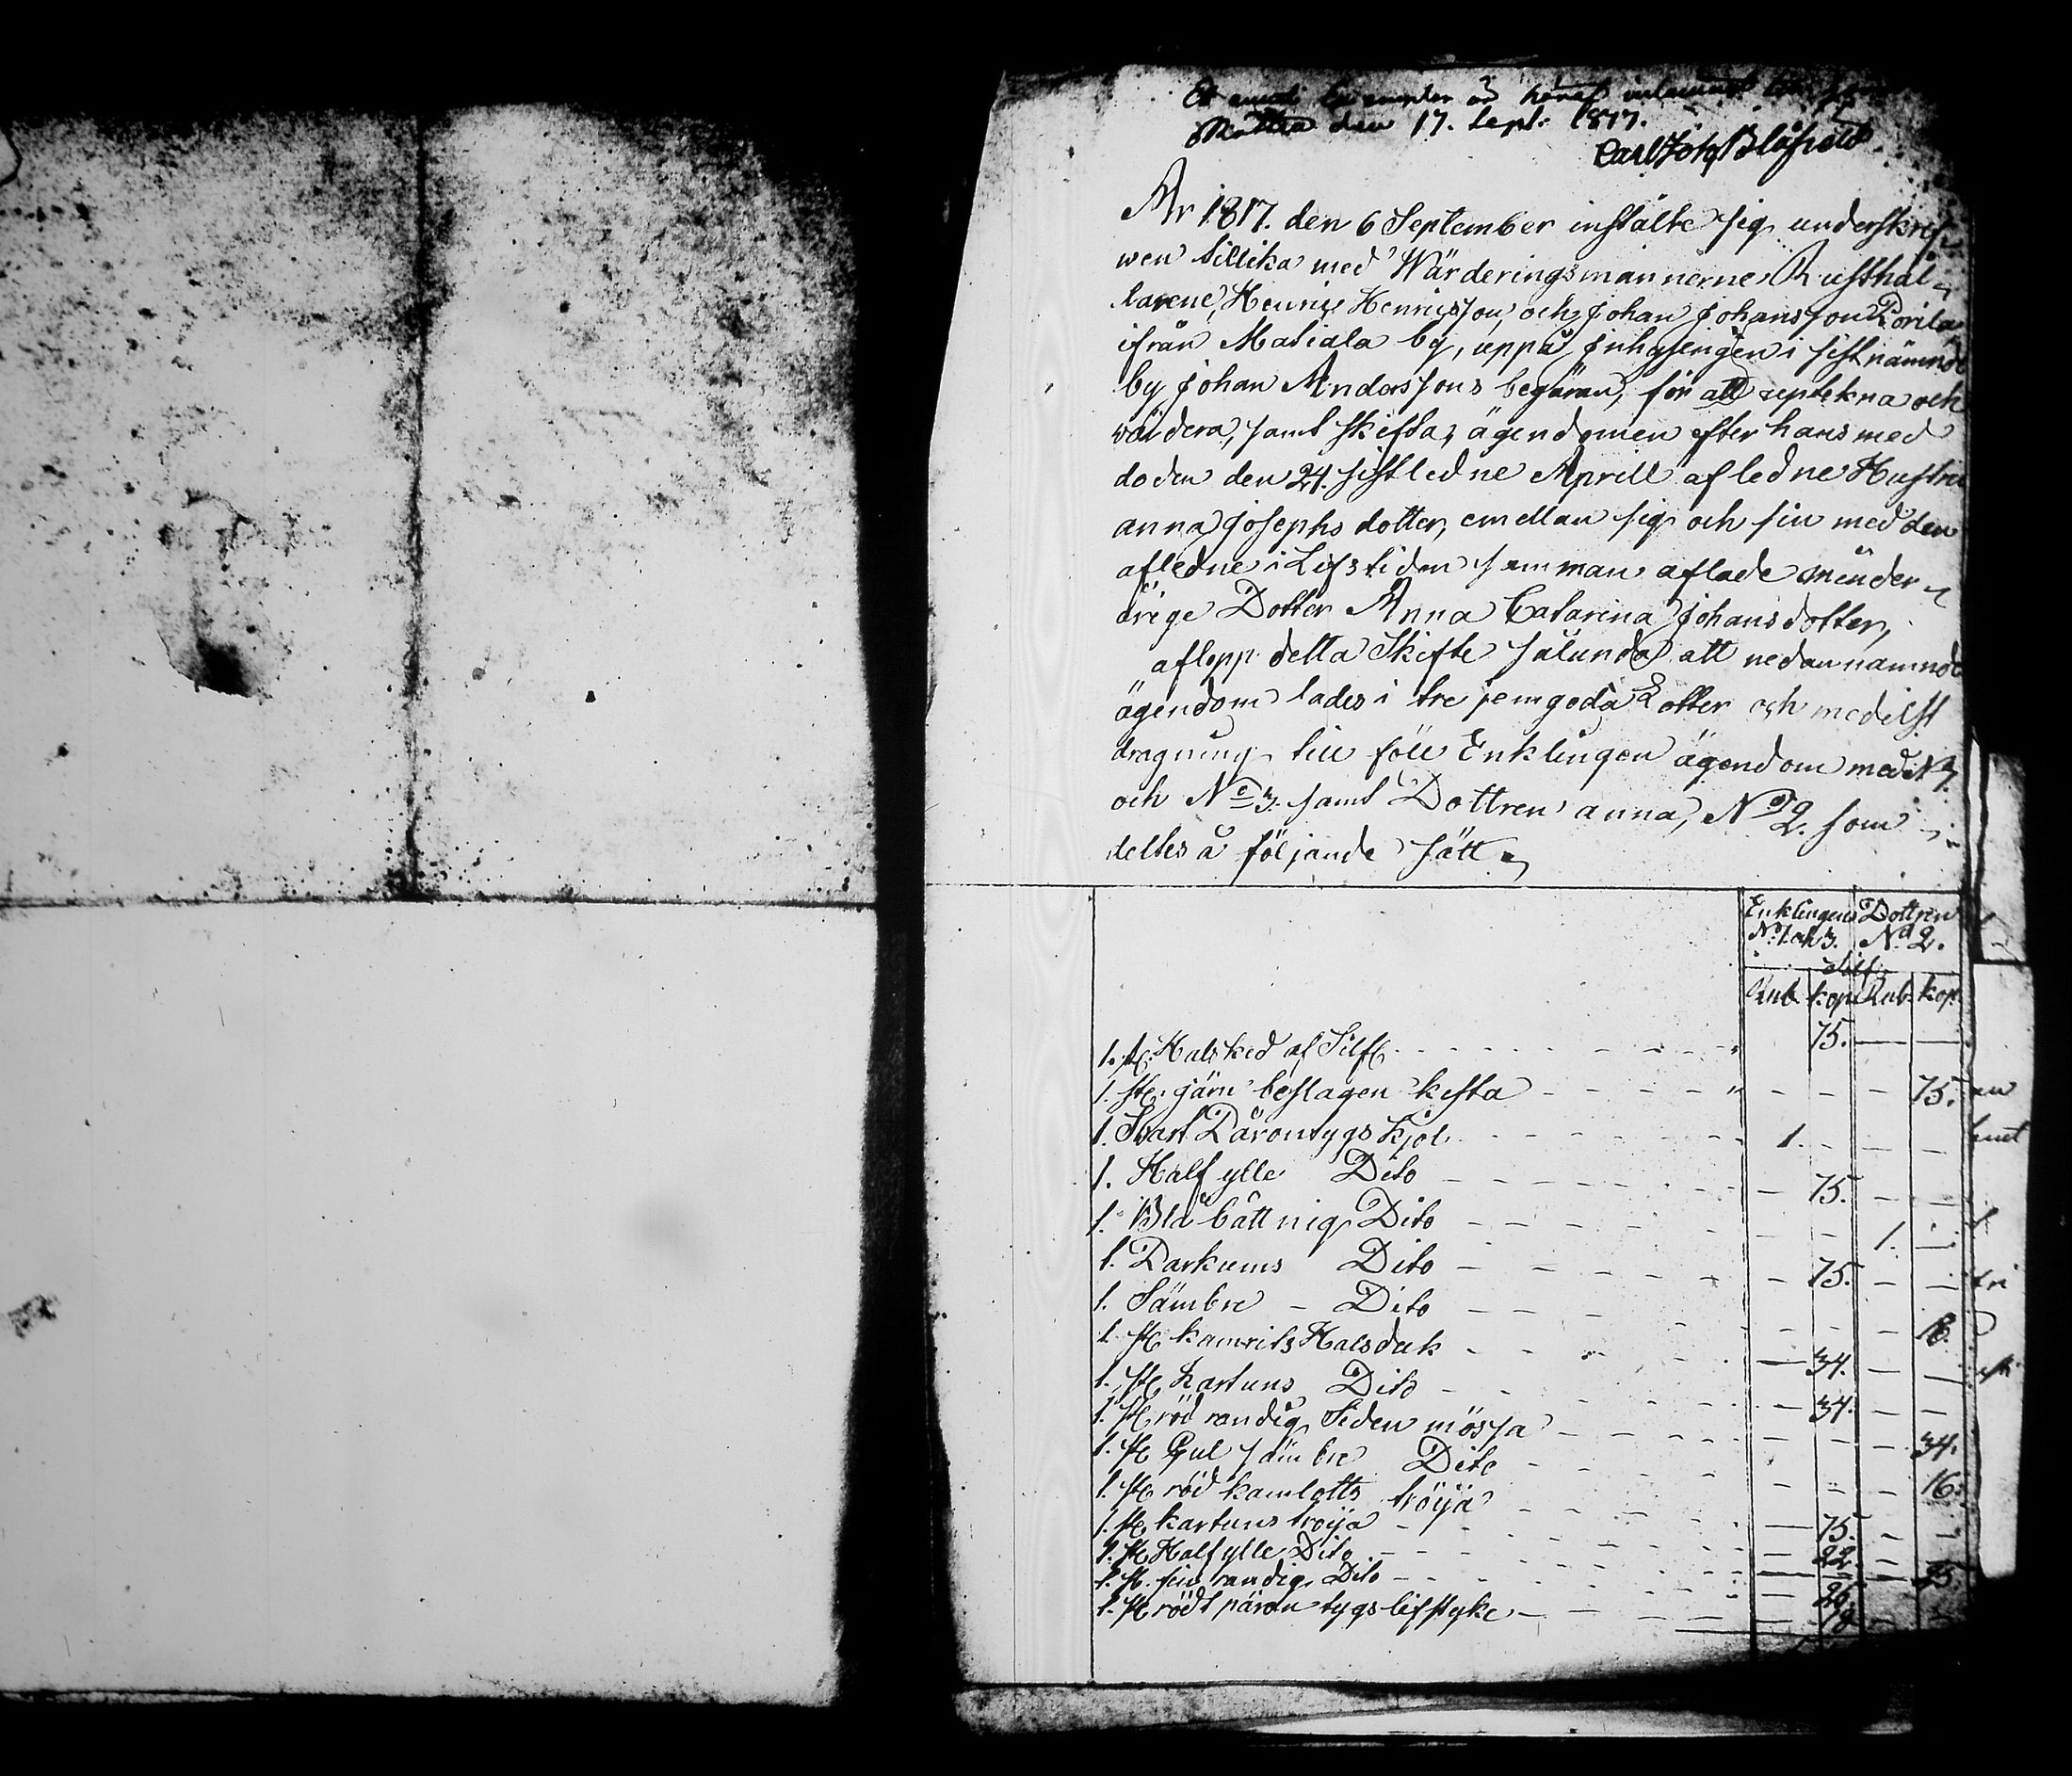 Et annat Exemplar är häraf inlemnadt
den 17. Sept: 1817.
Carl Joh Blåfield
År 1817. den 6 September instälte sig underskref-
wen tillika med Wärderingsmännerne Rusthål-
larene, Henric Henricsson, och Johan Johansson Torila
ifrån Matiala by, uppå Inhysingen i sistnämnde
by Johan Anderssons begäran, för att uptekna och
wärdera, samt skifta, ägendomen efter hans med
döden den 24. sistledne Aprill afledne Hustru
anna Josephs dotter, emellan sig och sin med den
afledne i Lifstiden samman aflade minder-
årige Dotter Anna Catarina Johansdotter,
aflopp detta Skifte sålunda att nedannämnde
ägendom lades i tre jemgoda Lotter och medelst
dragning till föll Enklingen ägendom med N 1
och No 3. samt Dottren anna, No 2. som
deltes å följande sätt
Enklingens Dottren
No 1. och 3. No 2.
Silf:
Rub. kop. Rub. kop.
1. st: Halsked af Silf - - - " 75. — —
1. st: järn beslagen kista - - - " - - - 75.
1. Svart Däronstygs kjol - - - 1. - - -
1. Half ylle Dito - - - 75. - -
1. Blå båttnig Dito - - - 1. —
1. Darkums Dito - - - 75. - -
1. Sämbre - Dito - - - 18.
1. st kamrits Halsduk - - - 34. — —
1. st kartuns Dito - - - 34. - -
1. st röd randig Siden mössa - - - 34.
1. st Gul sämbre Dito - - - 16.
1. st röd kamlotts tröija - - - 75. - -
1. st kartuns tröija - - - 22. -
1. st Half ylle Dito - - - 25
1. st fin randig Dito - - - 25.
1. st rödt päron tygs lifstyke - - - 18